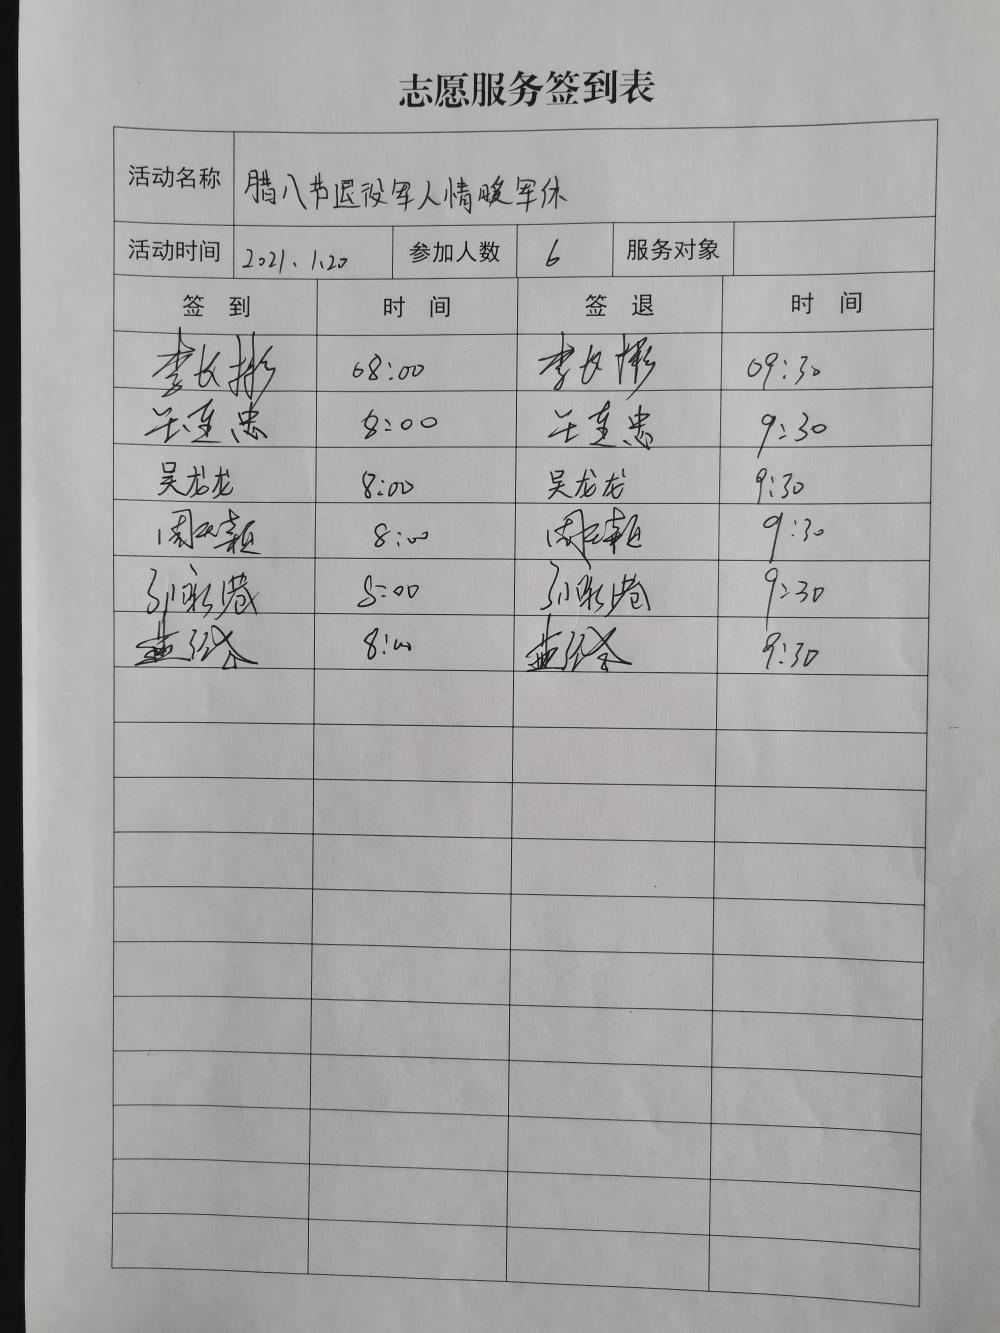 志愿服务签到表
活动名称 腊八节退役军人情暖军休
活动时间 2021.1.20 参加人数 6 服务对象
签 到 时 间 签 退 时 间
李长彬 08:00 李长彬 09:30
王连忠 8:00 王连忠 9:30
吴龙龙 8:00 吴龙龙 9:30
周 8:00 周 9:30
8:00 9:30
8:00 9:30